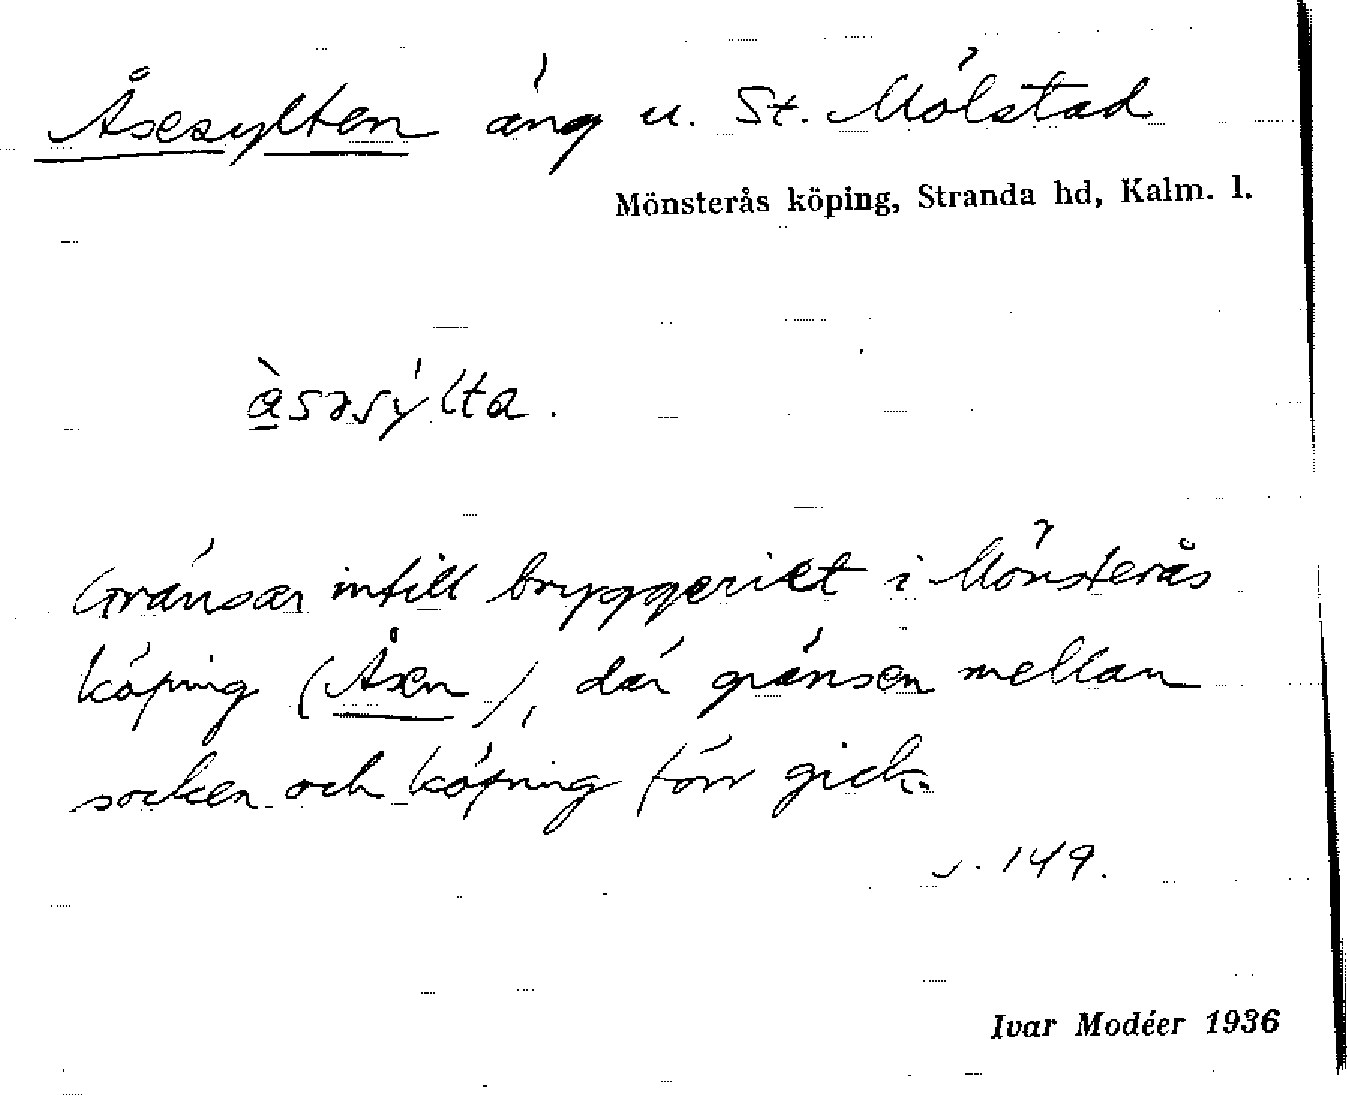 Åsesylten äng u. St. Mölstad
Mönsterås köping, Stranda hd, Kalm. l.
à̱səsý́lta.
Gränsar intill bryggeriet i Mönsterås
köping (Åsen), där gränsen mellan
socken och köping förr gick.
s. 149.
Ivar Modéer 1936